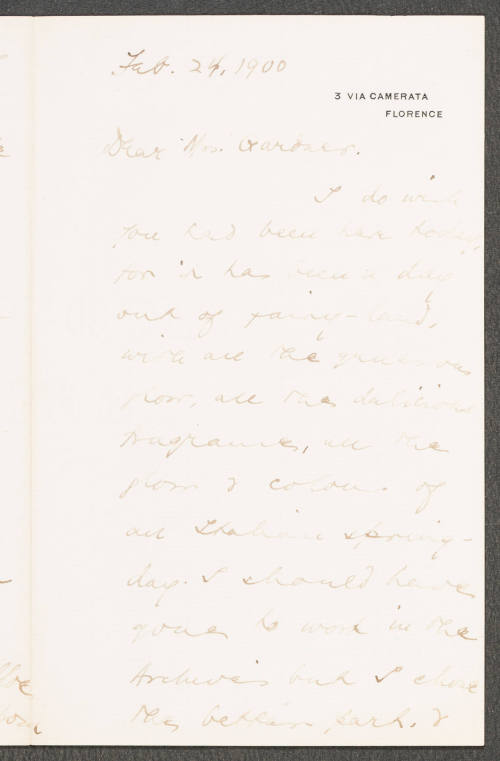 Feb. 24, 1900
3 VIA CAMERATA
FLORENCE
Dear Mrs. Gardner.
I do wish
you had been here today,
for it has been a day
out of fairy-land,
with all the generous
glow, all the delicious
fragrance, all the
gloss & colour of
an Italian spring-
day. I should have
gone to work in the
Archives but I chose
the better part, &